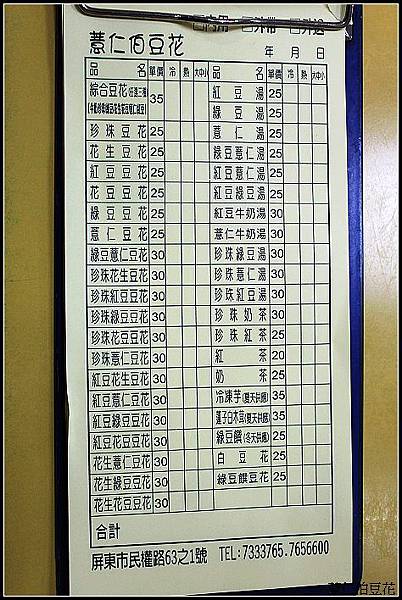 □內用 □外帶 □外送
薏仁伯豆花
年 月 日
品 名 單價 冷 熱 大中小 品 名 單價 冷 熱 大中小
綜合豆花(任選三種) 35 紅豆湯 25
綠豆湯 25
珍珠豆花 25 薏仁湯 25
花生豆花 25 綠豆薏仁湯 25
紅豆豆花 25 紅豆薏仁湯 25
花豆豆花 25 紅豆綠豆湯 25
綠豆豆花 25 紅豆牛奶湯 30
薏仁豆花 25 薏仁牛奶湯 30
綠豆薏仁豆花 30 珍珠綠豆湯 30
珍珠花生豆花 30 珍珠薏仁湯 30
珍珠紅豆豆花 30 珍珠紅豆湯 30
珍珠綠豆豆花 30 珍珠奶茶 30
珍珠花豆豆花 30 珍珠紅茶 25
珍珠薏仁豆花 30 紅茶 20
紅豆花生豆花 30 奶茶 25
紅豆薏仁豆花 30 冷凍芋(夏天供應) 35
紅豆綠豆豆花 30 蓮子白木耳(夏天供應) 35
紅豆花豆豆花 30 綠豆饌(冬天供應) 25
花生薏仁豆花 30 白豆花 25
花生綠豆豆花 30 綠豆饌豆花 25
花生花豆豆花 30
合計
屏東市民權路63之1號 TEL:7333765.7656600
薏仁伯豆花